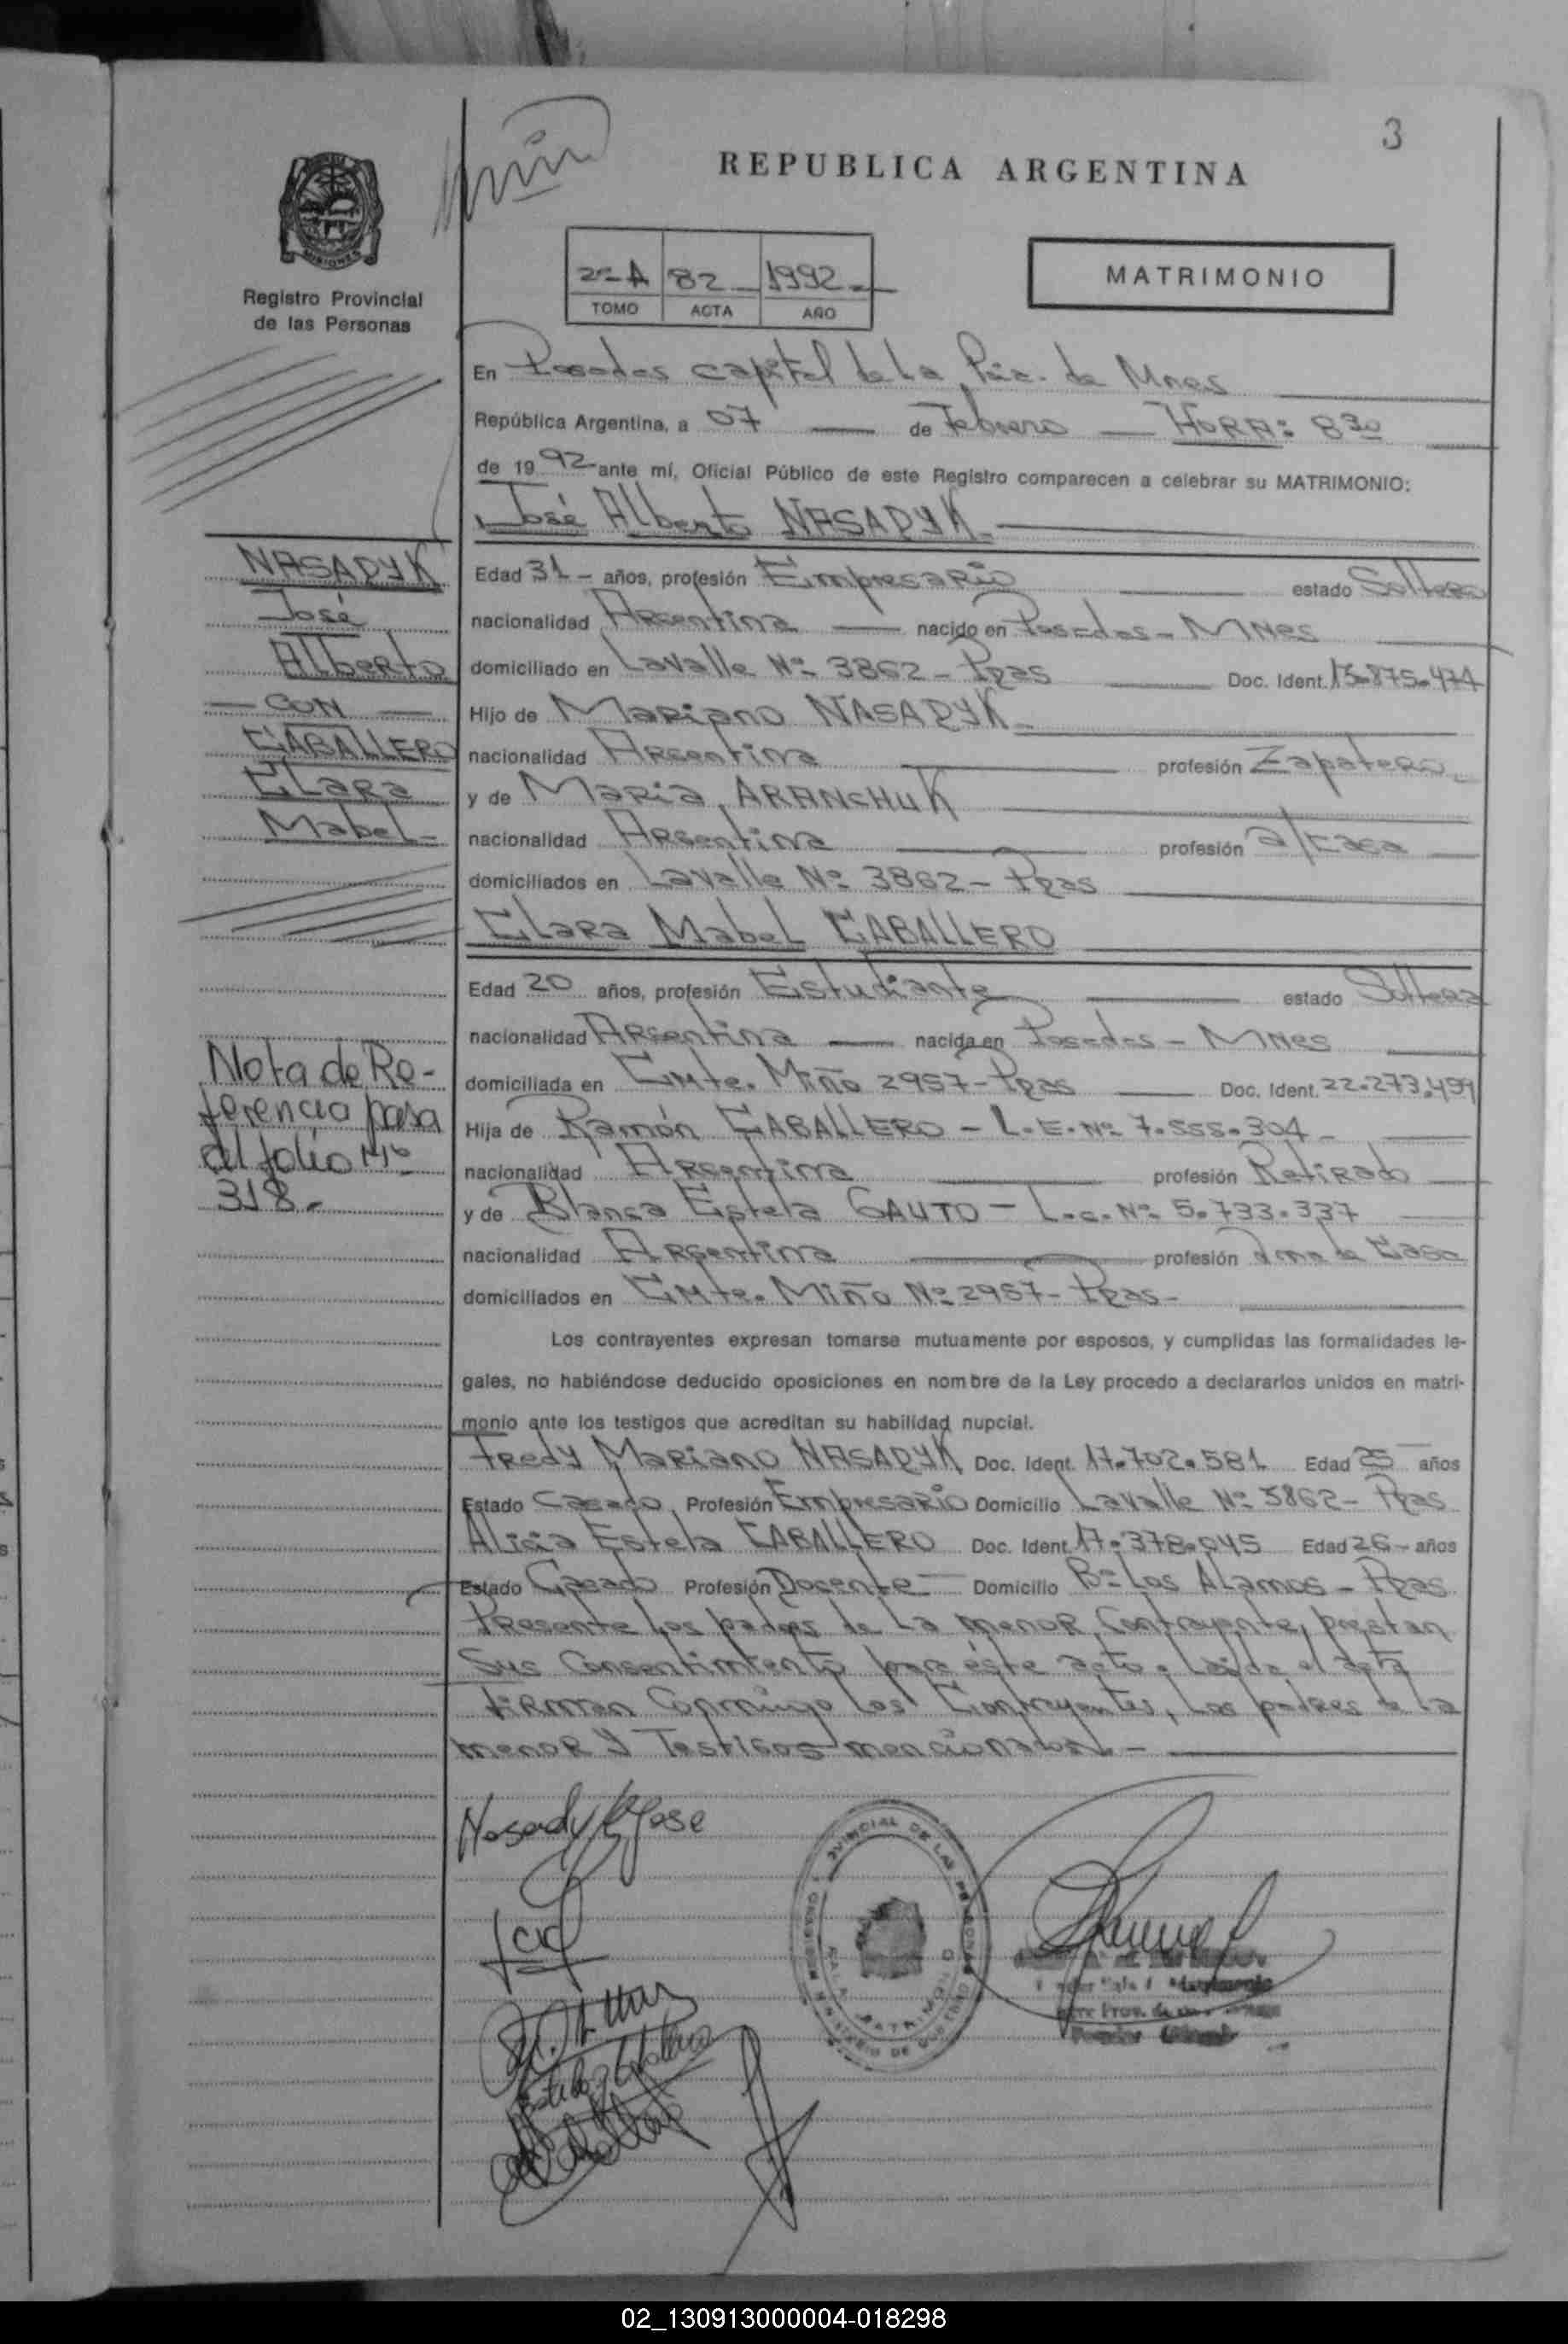 3
REPUBLICA ARGENTINA
MISIONES
Registro Provincial
de las Personas
2º A 82 1992
TOMO ACTA AÑO
MATRIMONIO
En Posadas capital de la Pcia. de Mnes
República Argentina, a 07 — de Febrero — HORA: 8 30
de 1992 ante mí, Oficial Público de este Registro comparecen a celebrar su MATRIMONIO:
José Alberto NASADYK
NASADYK
José
Alberto
— CON —
CABALLERO
Clara
Mabel
Edad 31 años, profesión Empresario estado Soltero
nacionalidad Argentina — nacido en Posadas - MNes
domiciliado en Lavalle Nº 3862 - Pdas Doc. Ident. 13.875.474
Hijo de Mariano NASADYK
nacionalidad Argentina profesión Zapatero
y de Maria ARANCHUK
nacionalidad Argentina profesión a/casa
domiciliados en Lavalle Nº 3862 - Pdas
Clara Mabel CABALLERO
Edad 20 años, profesión Estudiante estado Soltera
nacionalidad Argentina — nacida en Posadas - MNes
domiciliada en Cmte. Miño 2957 - Pdas Doc. Ident. 22.273.499
Hija de Ramón CABALLERO - L.E. Nº 7.555.304
nacionalidad Argentina profesión Retirado
y de Blanca Estela GAUTO - L.C. Nº 5.733.337
nacionalidad Argentina profesión Ama de Casa
domiciliados en Cmte. Miño Nº 2957 - Pdas
Nota de Re-
ferencia pasa
al folio Nº
318.-
Los contrayentes expresan tomarse mutuamente por esposos, y cumplidas las formalidades le-
gales, no habiéndose deducido oposiciones en nombre de la Ley procedo a declararlos unidos en matri-
monio ante los testigos que acreditan su habilidad nupcial.
Fredy Mariano NASADYK Doc. Ident. 17.702.581 Edad 25 años
Estado Casado Profesión Empresario Domicilio Lavalle Nº 3862 - Pdas
Alicia Estela CABALLERO Doc. Ident. 17.378.045 Edad 26 años
Estado Casado Profesión Docente Domicilio Bº Los Alamos - Pdas
Presente los padres de la menor contrayente, prestan
Sus Consentimiento para éste acto. Leida el acta
firman Conmigo los Contrayentes, los padres de la
menor y Testigos mencionados.-
Nasadyk Jose
MATRIMONIO
02_130913000004-018298